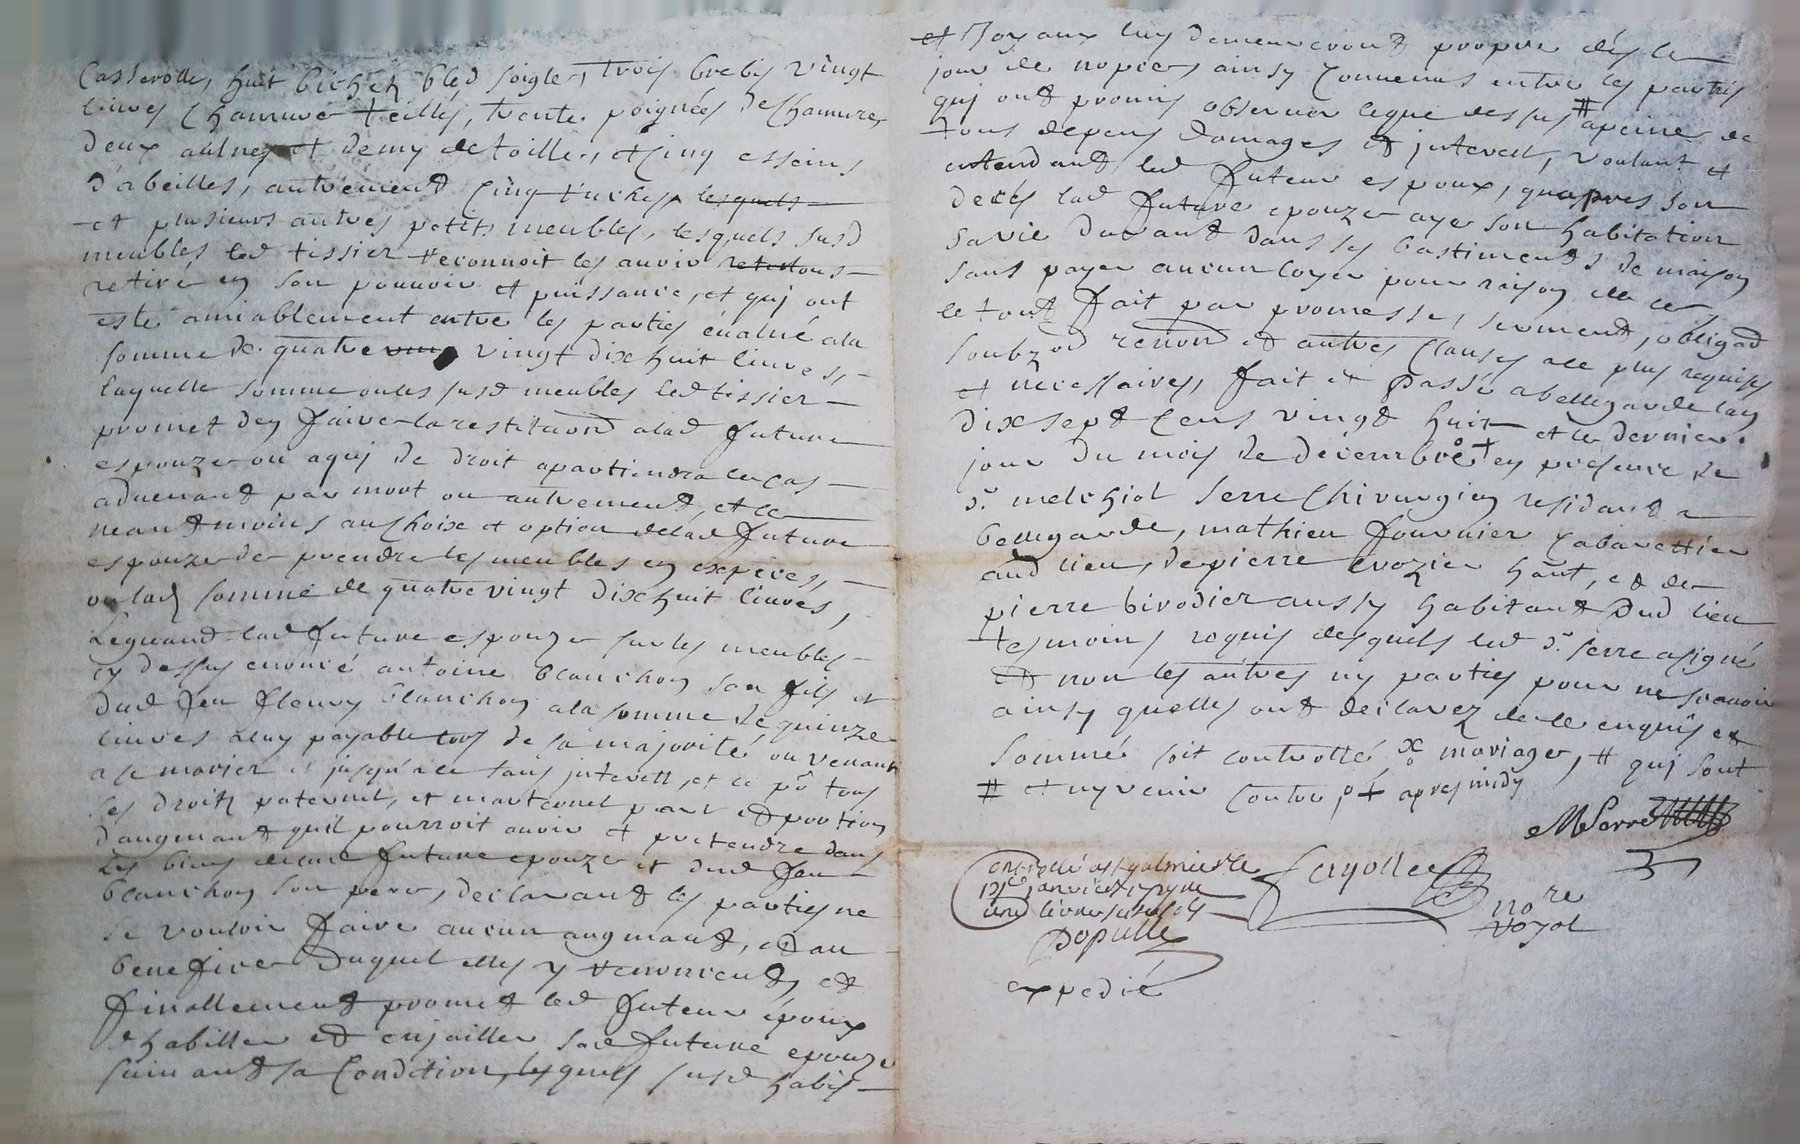 Casserolle, huit bichetz bled soigle, trois brebis vingt
livres Chanvre teilles, trente poignées de Chanvre,
deux aulnes et demy de toille, et cinq esseins
d'abeilles, autrement cinq ruches, lesquels
et plusieurs autres petits meubles, lesquels susd
meubles led tissier reconnoit les avoir
retiré en son pouvoir et puissance, et qui ont
esté amiablement entre les parties évalué a la
somme de quatre vingt dix huit livres,
laquelle somme ou les susd meubles led tissier
promet d'en faire la restitu͠on a lad future
espouze ou a qui de droit apartiendra le cas
advenant par mort ou autrement, et ce
neantmoins au choix et option de lad future
espouze de prendre les meubles en expèces,
ou lad somme de quatre vingt dix huit livres,
leguant lad future espouze sur les meubles
cy dessus enoncé antoine blanchon son fils et
dud feu fleury blanchon a la somme de quinze
livres a luy payable lors de sa majorité ou venant
a se marier et jusqu'a ce sans interest, et ce pr tous
ses droitz paternel, et maternel part et portion
d'augmant qu'il pourroit avoir et pretendre dans
les biens de lad future epouze et dud feu
blanchon son pere, declarant les parties ne
se vouloir faire aucun augmant, et au
benefice duquel elles y renoncent, et
finallement promet led futeur époux
habiller et enjoailler sad future epouze
suivant sa Condition, lesquels susd habis
et Joyaux luy demeureront propre dés le
jour de nopces ainsy Convenus entre les partiës
qui ont promis observer ce que dessus # apeine de
tous depens domages et interest, voulant et
entendant led futeur espoux, qu'apres son
decés lad future epouze aye son habitation
sa vie durant dans ses bastiments de maison
sans payer aucun loyer pour raison de ce
le tout fait par promesse, serment, obligad
soubz od renon et autres Clauses a ce plus requises
et necessaires, fait et Passé a bellegarde l'an
dix sept Cens vingt huit et le dernier
jour du mois de décembre + en présence de
sr melchiol serre Chirurgien residant a
bellegarde, mathieu fournier Cabarettier
aud lieu, de pierre Crozier haut, et de
pierre birodier aussy habitant dud lieu
tesmoins requis desquels led sr serre a signé
et non les autres ny parties pour ne scavoir
ainsy qu'elles ont declarez de ce enquis et
sommé soit controllé x mariage, # qui sont
# et ny venir Contre, + apres midy
MSerre
Controllé a st galmier le
janvier 1729
livres sols
Fayolle
nore
royal
Populle
expedié